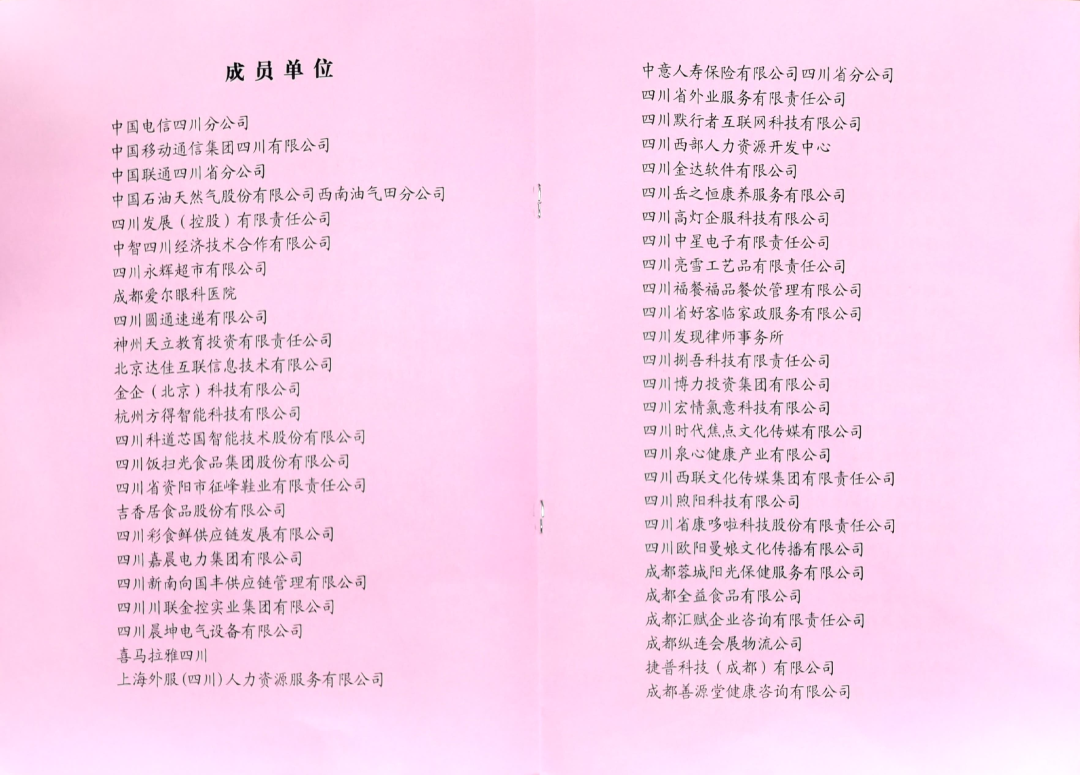 成员单位
中国电信四川分公司
中国移动通信集团四川有限公司
中国联通四川省分公司
中国石油天然气股份有限公司西南油气田分公司
四川发展（控股）有限责任公司
中智四川经济技术合作有限公司
四川永辉超市有限公司
成都爱尔眼科医院
四川圆通速递有限公司
神州天立教育投资有限责任公司
北京达佳互联信息技术有限公司
金企（北京）科技有限公司
杭州方得智能科技有限公司
四川科道芯国智能技术股份有限公司
四川饭扫光食品集团股份有限公司
四川省资阳市征峰鞋业有限责任公司
吉香居食品股份有限公司
四川彩食鲜供应链发展有限公司
四川嘉晨电力集团有限公司
四川新南向国丰供应链管理有限公司
四川川联金控实业集团有限公司
四川晨坤电气设备有限公司
喜马拉雅四川
上海外服(四川)人力资源服务有限公司
中意人寿保险有限公司四川省分公司
四川省外业服务有限责任公司
四川默行者互联网科技有限公司
四川西部人力资源开发中心
四川金达软件有限公司
四川岳之恒康养服务有限公司
四川高灯企服科技有限公司
四川中星电子有限责任公司
四川亮雪工艺品有限责任公司
四川福餐福品餐饮管理有限公司
四川省好客临家政服务有限公司
四川发现律师事务所
四川捌吾科技有限责任公司
四川博力投资集团有限公司
四川宏情氣意科技有限公司
四川时代焦点文化传媒有限公司
四川泉心健康产业有限公司
四川西联文化传媒集团有限责任公司
四川煦阳科技有限公司
四川省康哆啦科技股份有限责任公司
四川欧阳曼娘文化传播有限公司
成都蓉城阳光保健服务有限公司
成都全益食品有限公司
成都汇赋企业咨询有限责任公司
成都纵连会展物流公司
捷普科技（成都）有限公司
成都善源堂健康咨询有限公司